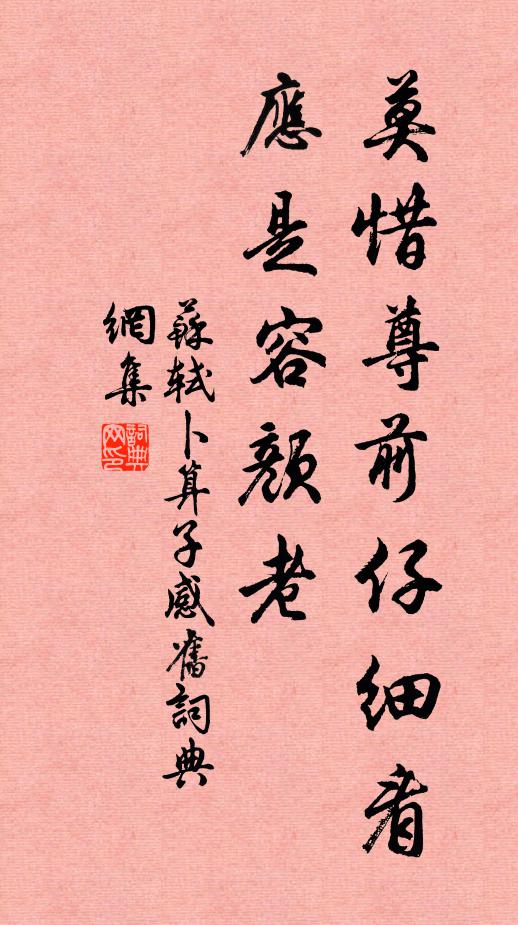 莫惜尊前仔細看
應是容顏老
蘇軾卜算子感舊詞典
網集
詞典
网印